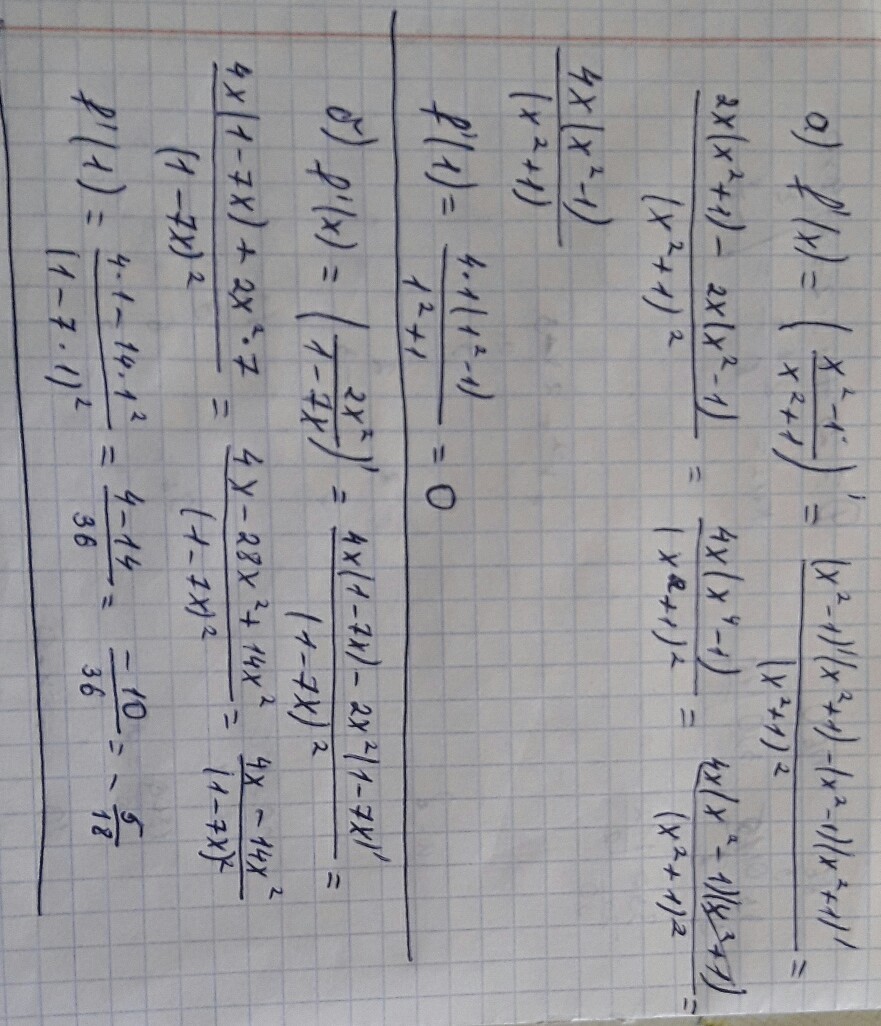 а) f'(x) = ((x²-1)/(x²+1))' = ((x²-1)'(x²+1)-(x²-1)(x²+1)')/(x²+1)² =
(2x(x²+1)- 2x(x²-1))/(x²+1)² = (4x(x⁴-1))/(x²+1)² = (4x(x²-1)(x²+1))/(x²+1)² =
(4x(x²-1))/(x²+1)
f'(1) = (4·1(1²-1))/(1²+1) = 0
б) f'(x) = (2x²/(1-7x))' = (4x(1-7x)- 2x²(1-7x)')/(1-7x)² =
(4x(1-7x)+2x²·7)/(1-7x)² = (4x-28x²+14x²)/(1-7x)² = (4x-14x²)/(1-7x)²
f'(1) = (4·1-14·1²)/(1-7·1)² = (4-14)/36 = -10/36 = -5/18